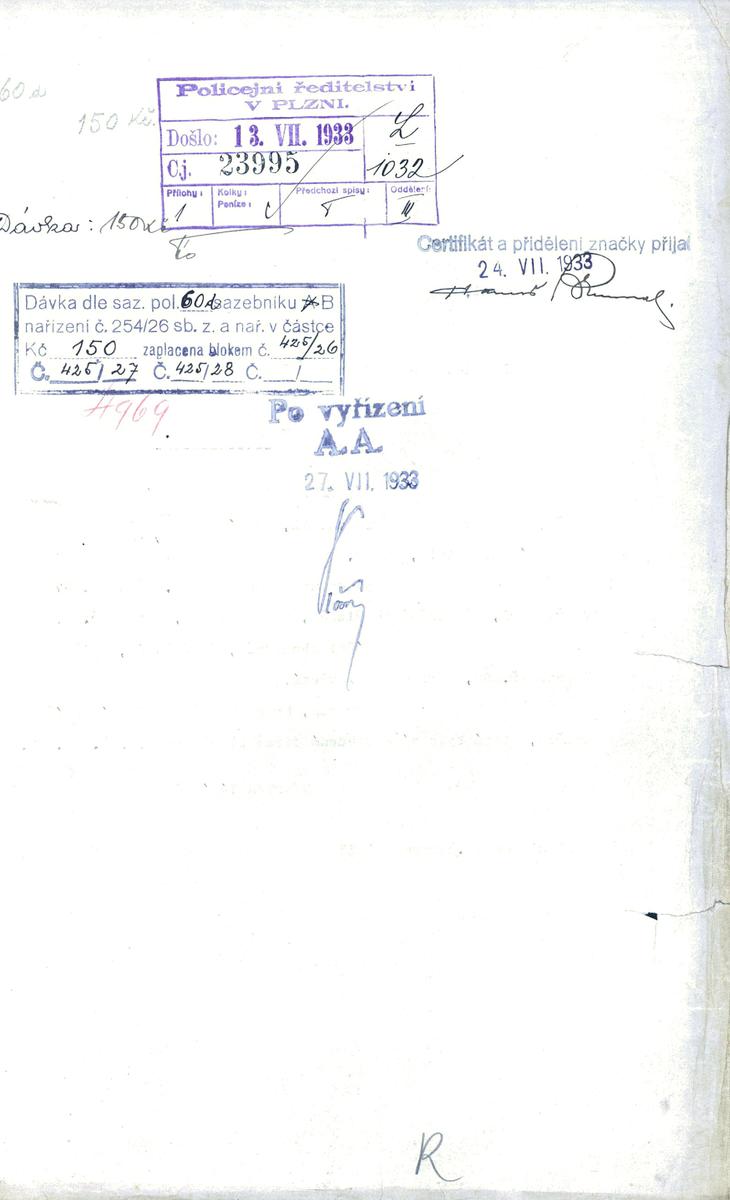 60 d
150 Kč.
Policejní ředitelství
V PLZNI.
Došlo: 13. VII. 1933
Z
Čj. 23995
1032
Přílohy: Kolky: Peníze: Předchozí spisy: Oddělení:
1 III
Dávka: 150 Kč
Certifikát a přidělení značky přijal
24. VII. 1933
Dávka dle saz. pol. 60 d sazebníku A B
nařízení č. 254/26 sb. z. a nař. v částce
Kč 150 zaplacena blokem č. 425/26
Č. 425/27 Č. 425/28 Č. /
4969
Po vyřízení
A.A.
27. VII. 1933
R